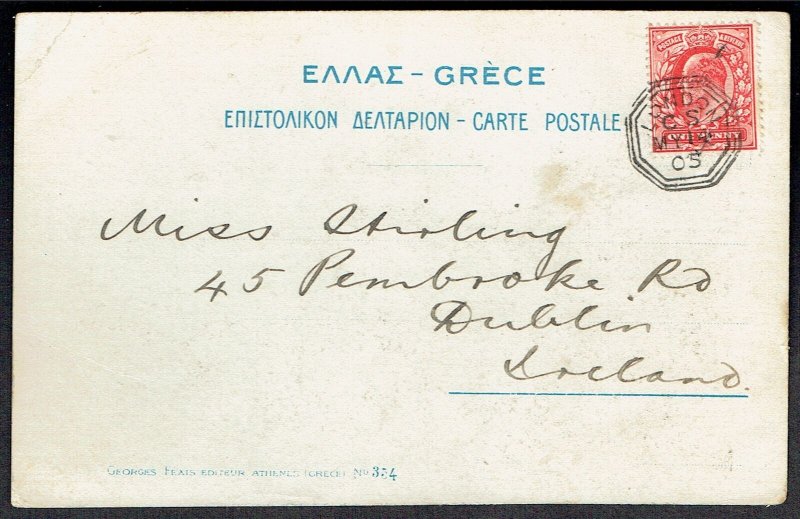 ΕΛΛΑΣ - GRÈCE
ΕΠΙΣΤΟΛΙΚΟΝ ΔΕΛΤΑΡΙΟΝ - CARTE POSTALE
POSTAGE & REVENUE
ONE PENNY
C S
05
Miss Stirling
45 Pembroke Rd
Dublin
Ireland.
GEORGES FEXIS EDITEUR ATHENES (GRÈCE) No 354